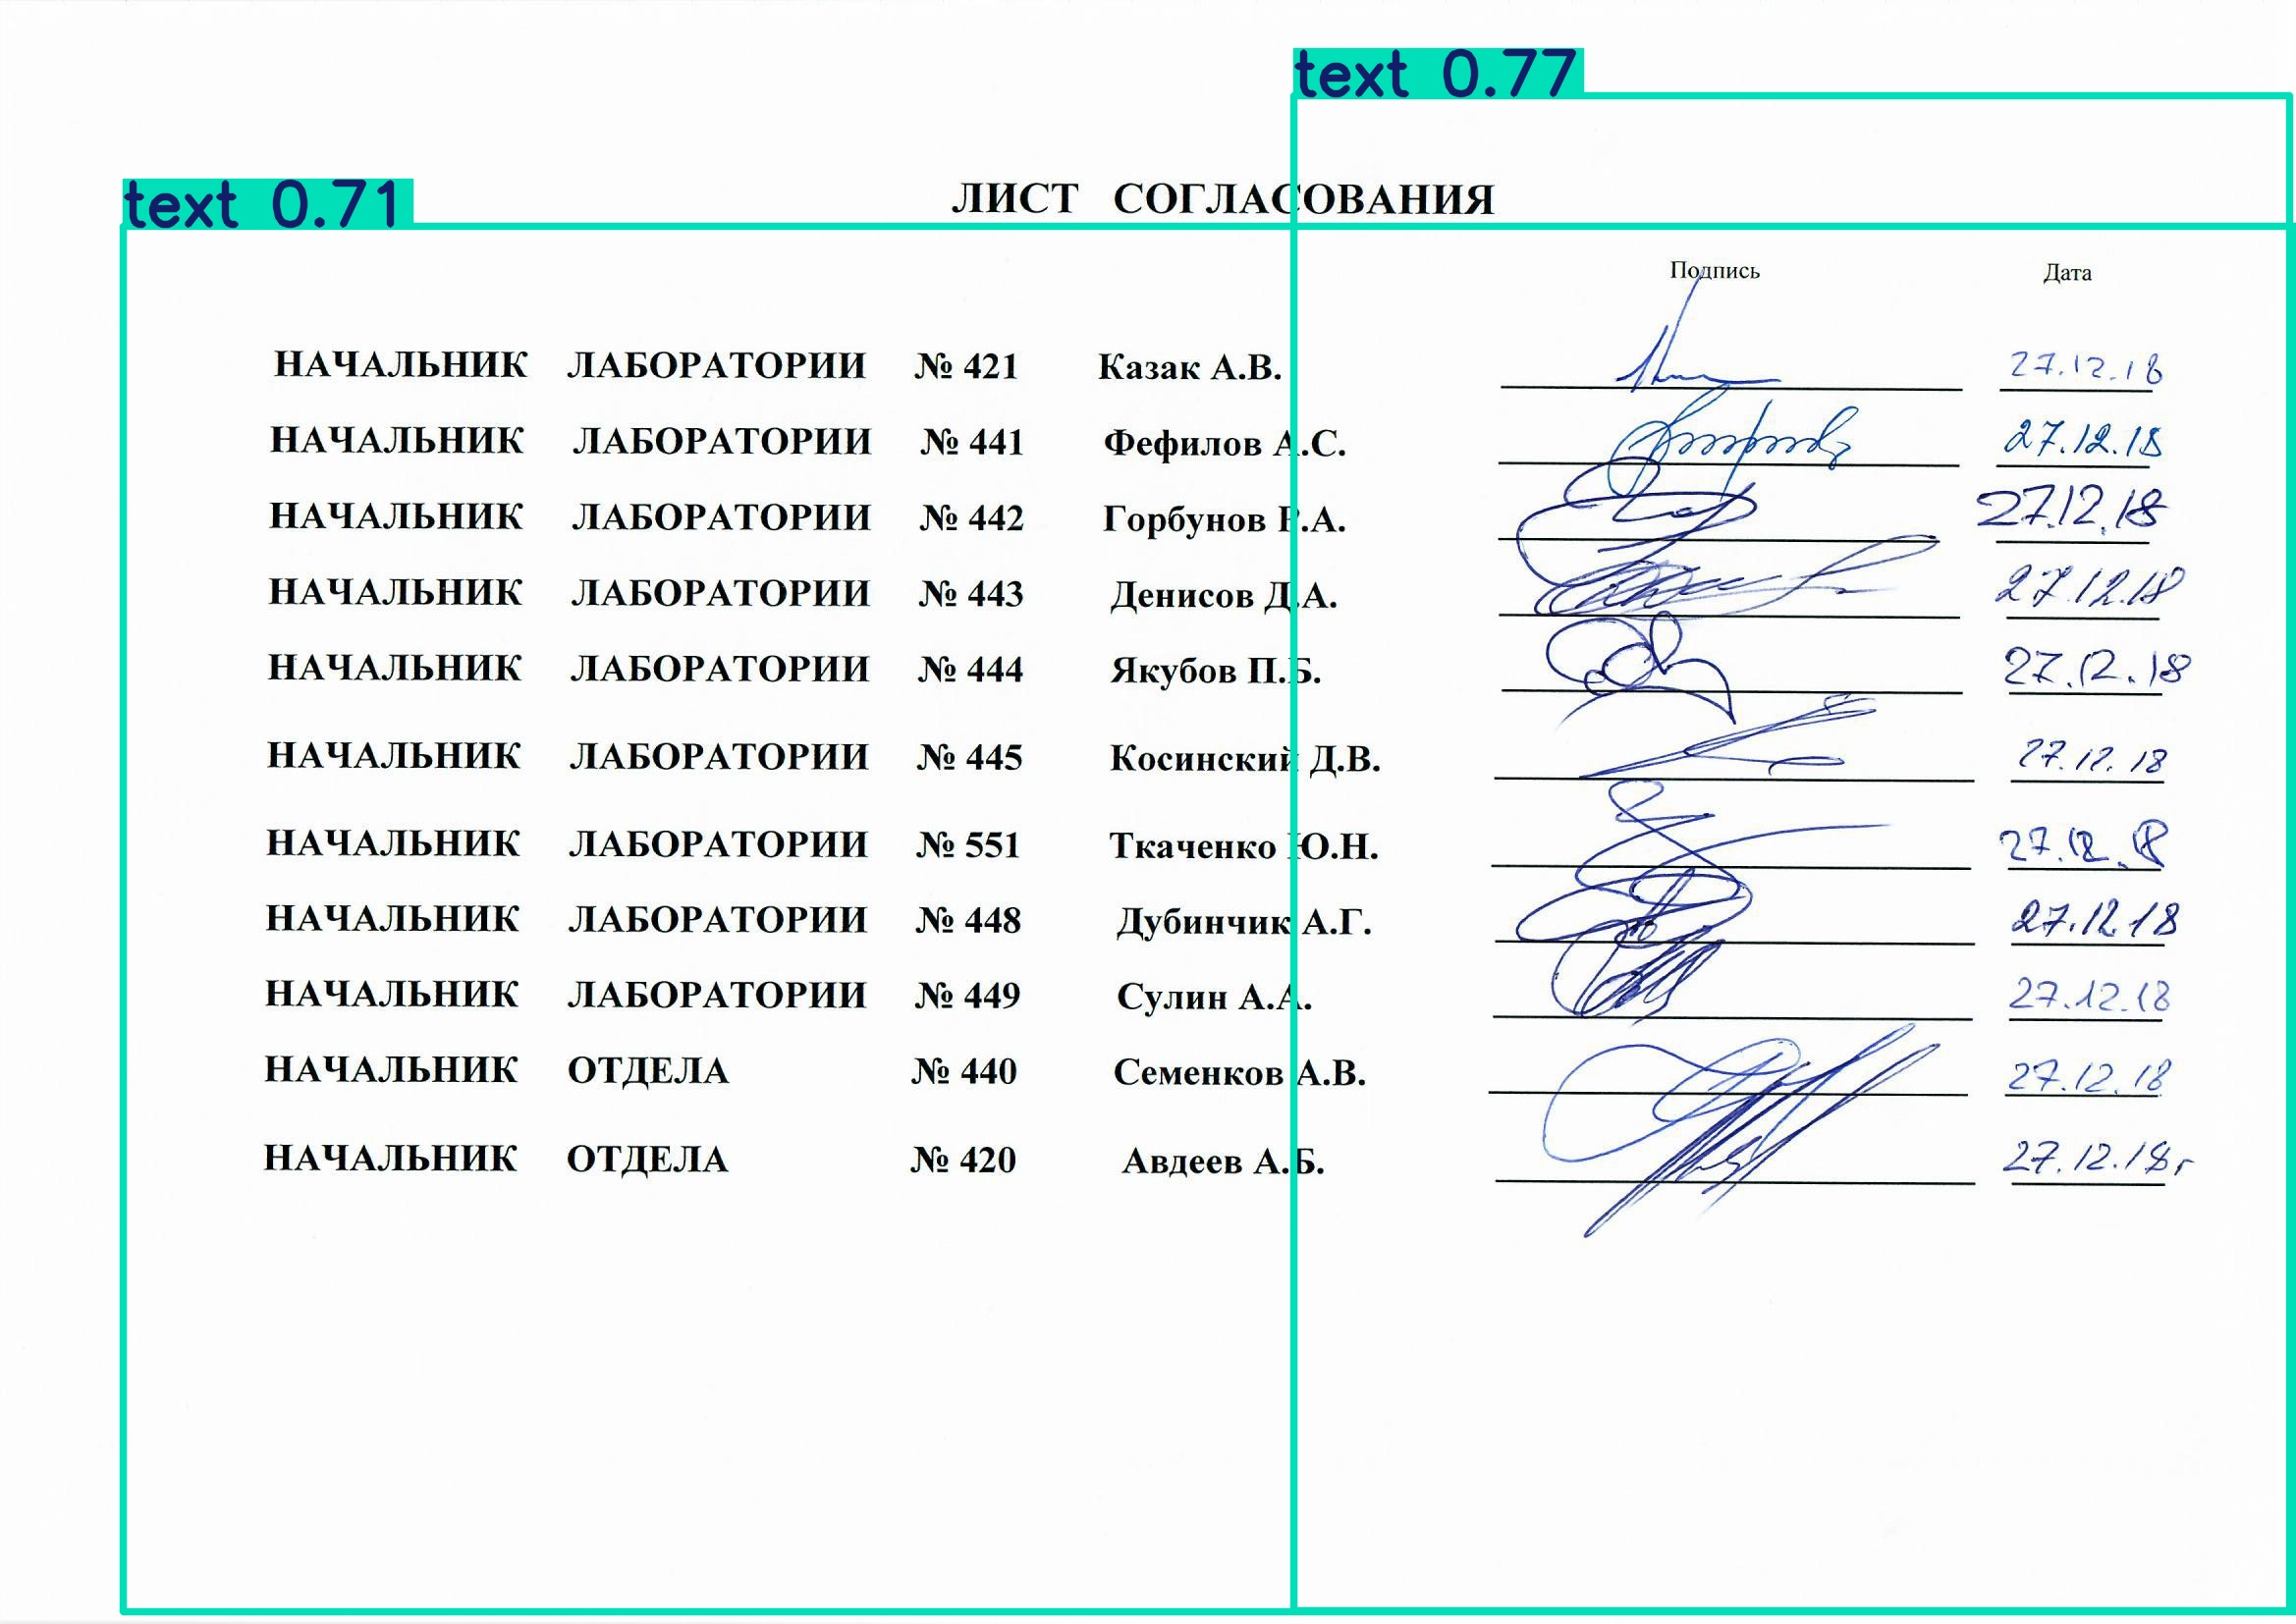 text 0.77
text 0.71
ЛИСТ СОГЛАСОВАНИЯ
Подпись Дата
НАЧАЛЬНИК ЛАБОРАТОРИИ № 421 Казак А.В. 27.12.18
НАЧАЛЬНИК ЛАБОРАТОРИИ № 441 Фефилов А.С. 27.12.18
НАЧАЛЬНИК ЛАБОРАТОРИИ № 442 Горбунов Р.А. 27.12.18
НАЧАЛЬНИК ЛАБОРАТОРИИ № 443 Денисов Д.А. 27.12.18
НАЧАЛЬНИК ЛАБОРАТОРИИ № 444 Якубов П.Б. 27.12.18
НАЧАЛЬНИК ЛАБОРАТОРИИ № 445 Косинский Д.В. 27.12.18
НАЧАЛЬНИК ЛАБОРАТОРИИ № 551 Ткаченко Ю.Н. 27.12.18
НАЧАЛЬНИК ЛАБОРАТОРИИ № 448 Дубинчик А.Г. 27.12.18
НАЧАЛЬНИК ЛАБОРАТОРИИ № 449 Сулин А.А. 27.12.18
НАЧАЛЬНИК ОТДЕЛА № 440 Семенков А.В. 27.12.18
НАЧАЛЬНИК ОТДЕЛА № 420 Авдеев А.Б. 27.12.18г